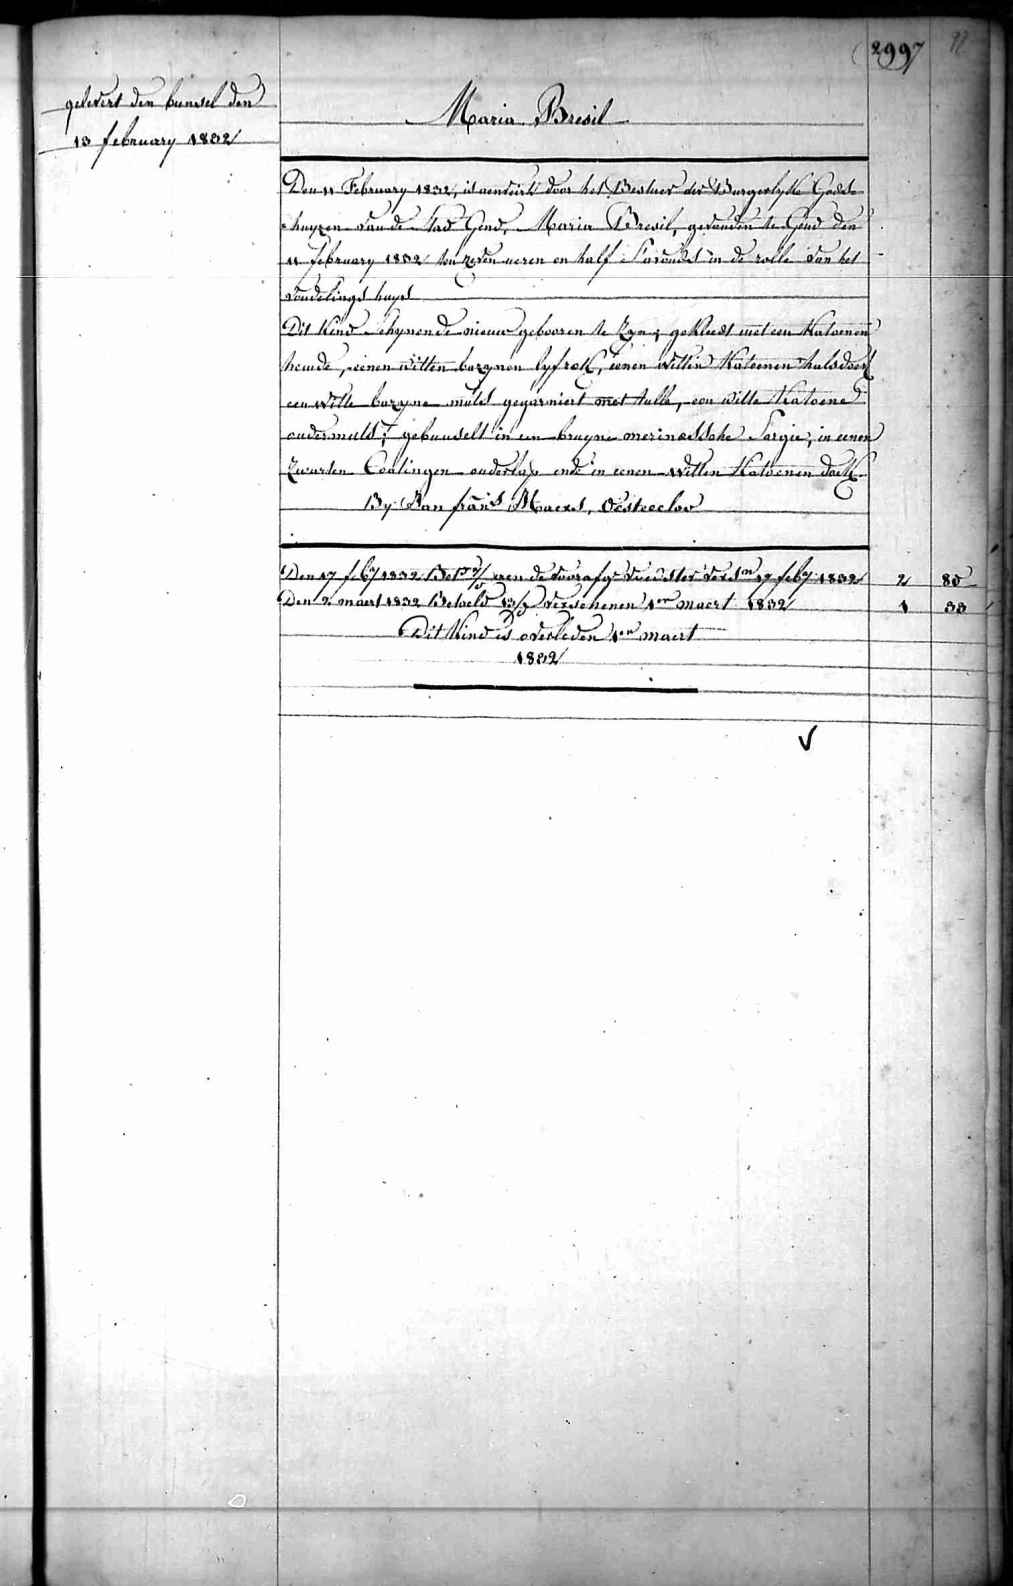 2997
gelevert den bunsel den
13 february 1832
Maria Bresil
Den 11 February 1832, is aenveirt door het Bestuer der Burgerlyke Gods-
huyzen van de Stad Gend, Maria Bresil, gevonden te Gend den
11 february 1832 ten zeven ueren en half s'avonds in de rolle van het
vondelings huys
Dit Kind schynende nieuw gebooren te zyn, gekleed met een Katoenen
hemde, eenen witten bazynen lyfrok, eenen witten Katoenen halsdoek
een witte bazyne muts gegarniert met tulle, een witte Katoene
ondermuts, gebunselt in een bruyne merinossche Sargie, in eenen
zwarten Coatingen onderlap ende in eenen witten Katoenen doek.
By Jan frans Maeres, Oosteecloo
Den 17 feby 1832 aen de voorafge 17 feby 1832 2 80
Den 2 maert 1832 Betaeld 13/ verschenen 1en maert 1832 1 33
Dit Kind is overleden 1en maert
1832